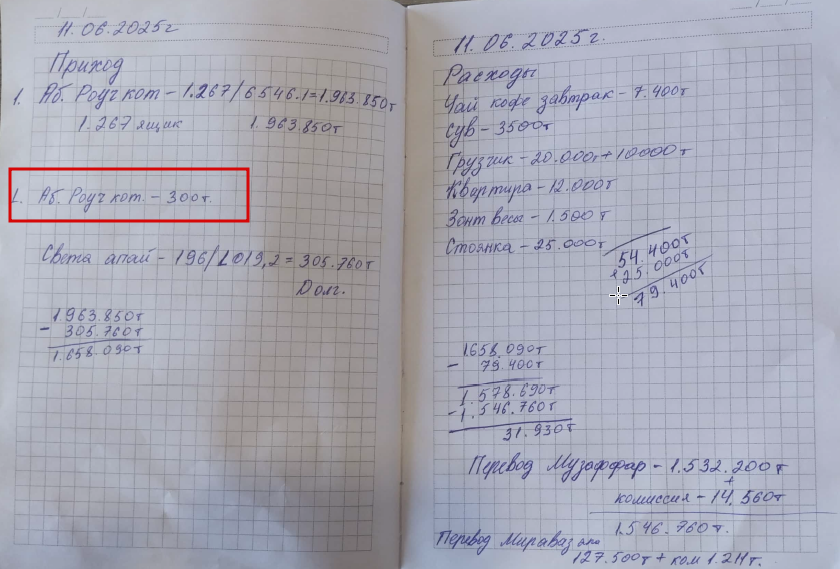 11.06.2025г
Приход
1. Аб. Роуч кот - 1.267/6546.1=1.963.850т
1.267 ящик 1.963.850т
1. Аб. Роуч кот. - 300т.
Света апай - 196/1019,2 = 305.760т
Долг.
1.963.850т
- 305.760т
1.658.090т
11.06.2025г.
Расходы
Чай кофе завтрак - 7.400т
Сув - 3500т
Грузчик - 20.000т+10000т
Квартира - 12.000т
Зонт весы - 1.500т
Стоянка - 25.000т
54.400т
+25.000т
79.400т
1.658.090т
- 79.400т
1.578.690т
-1.546.760т
31.930т
Перевод Музаффар - 1.532.200т
+
комиссия - 14.560т
1.546.760т.
Перевод Мираваз апа
127.500т + ком 1.211т.